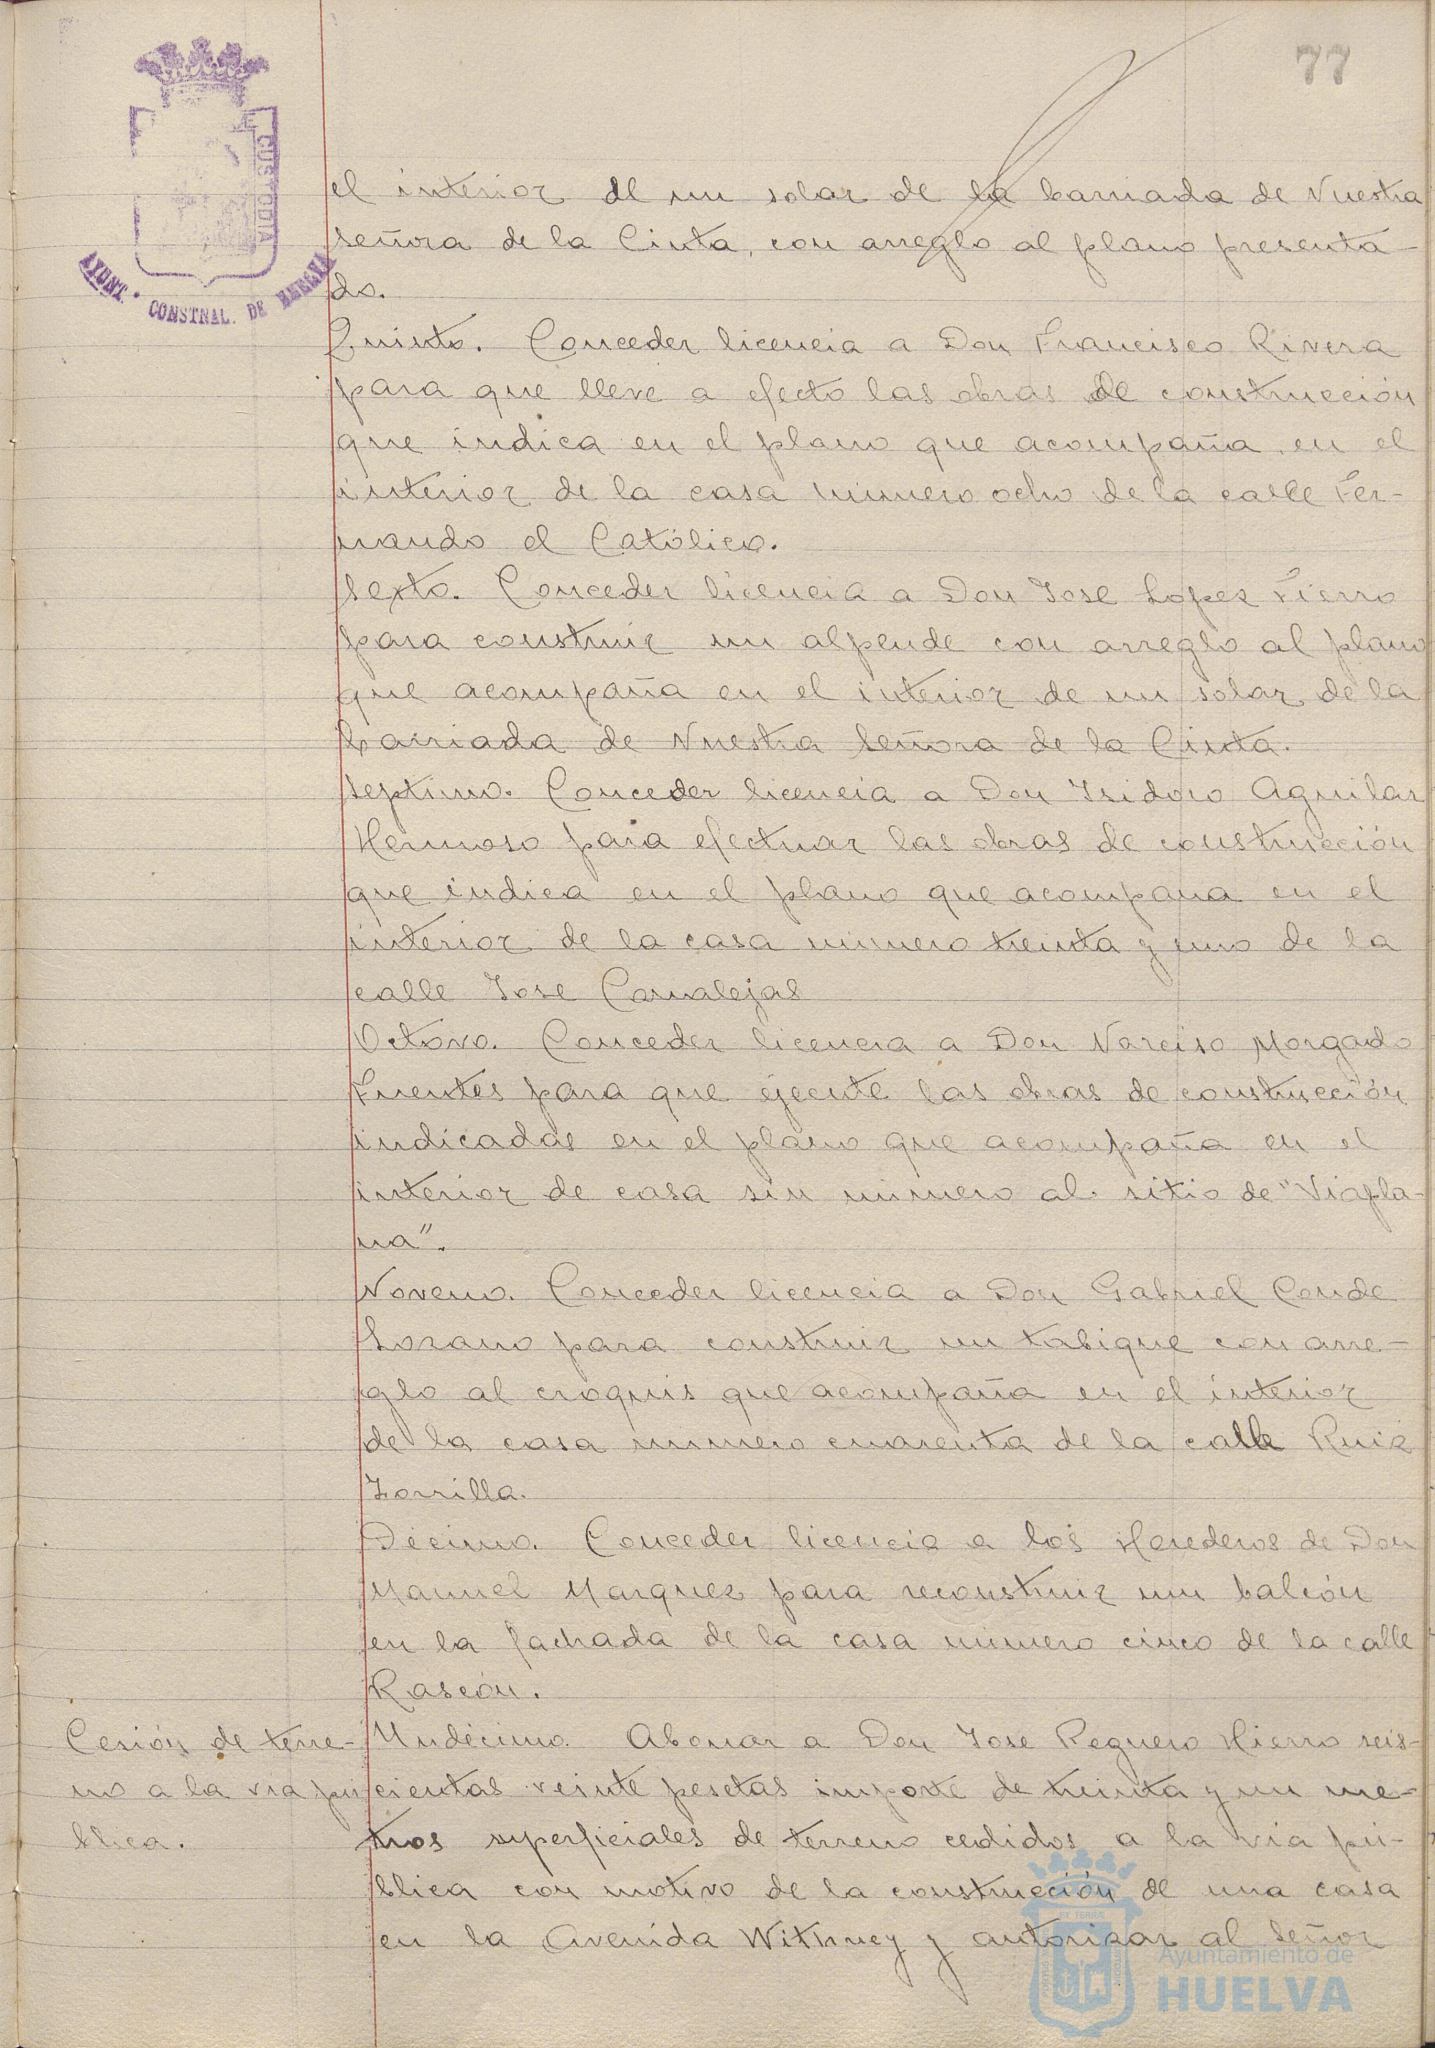 77
CUSTODIA
AYUNT. CONSTNAL. DE HUELVA
el interior de un solar de la barriada de Nuestra
señora de la Cinta, con arreglo al plano presenta-
do.
Quinto. Conceder licencia a Don Francisco Rivera
para que lleve a efecto las obras de construcción
que indica en el plano que acompaña en el
interior de la casa número ocho de la calle Fer-
nando el Católico.
Sexto. Conceder licencia a Don Jose Lopez Fierro
para construir un alpende con arreglo al plano
que acompaña en el interior de un solar de la
barriada de Nuestra Señora de la Cinta.
Septimo. Conceder licencia a Don Isidoro Aguilar
Hermoso para efectuar las obras de construcción
que indica en el plano que acompana en el
interior de la casa numero treinta y uno de la
calle Jose Canalejas
Octavo. Conceder licencia a Don Narciso Morgado
Fuentes para que ejecute las obras de construcción
indicadas en el plano que acompaña en el
interior de casa sin numero al sitio de "Viapla-
na".
Noveno. Conceder licencia a Don Gabriel Conde
Lozano para construir un tabique con arre-
glo al croquis que acompaña en el interior
de la casa numero cuarenta de la calle Ruiz
Zorrilla.
Décimo. Conceder licencia a los Herederos de Don
Manuel Marquez para reconstruir un balcón
en la fachada de la casa número cinco de la calle
Rascón.
Cesión de terre-
no a la via pú
blica.
Undécimo. Abonar a Don Jose Reguero Hierro seis-
cientas veinte pesetas importe de treinta y un me-
tros superficiales de terreno cedidos a la vía pú-
blica con motivo de la construcción de una casa
en la Avenida Withney y autorizar al Señor
Ayuntamiento de
HUELVA